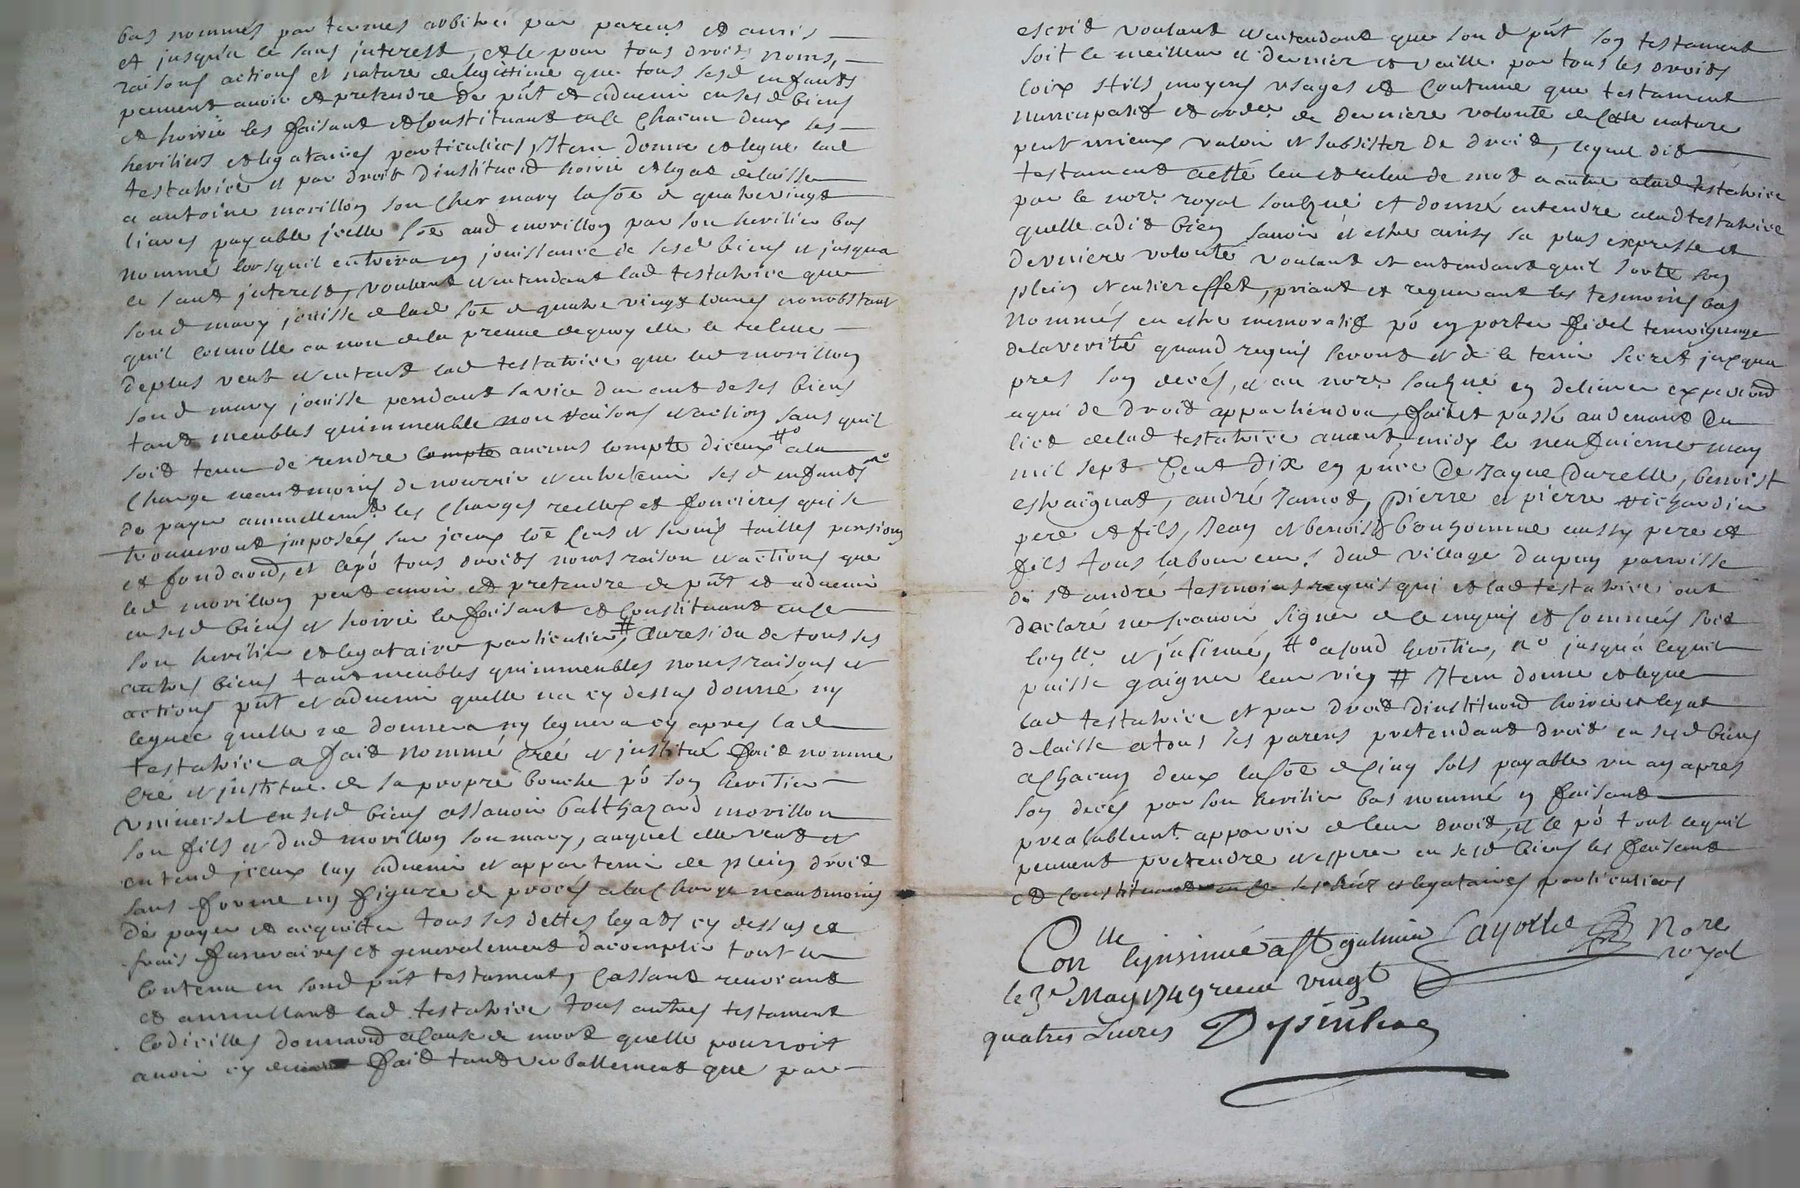 bas nommés par termes arbitré par parens et amis
et jusqu'a ce sans jnterest, et ce pour tous droits noms,
raisons actions et nature de legittime que tous sesd enfants
peuvent avoir et pretendre de pñt et aduenir en sesd biens
et hoirie les faisant et Constituant en ce Chacun deux ses
heritiers et legataires particuliers, Jtem donne et legue lad
testatrice et par droit d'institu[ti]oñ hoirie et legat delaisse
a antoine morillon son Cher mary la soẽ de quatrevingt
livres payable jcelle soẽ aud morillon par son heritier bas
nommé lorsquil entrera en jouissance de sesd biens et jusqua
ce sans jnterest, voulant et entendant lad testatrice que
sond mary jouisse de lad soẽ de quatre vingt livres nonobstant
quil Convolle ou non de la preuve de quoy elle le releve
deplus veut et entend lad testatrice que led morillon
sond mary jouisse pendant sa vie durant de ses biens
tant meubles quimmeuble nom raisons et action sans quil
soit tenu de rendre compte aucuns compte diceux #° a la
Charge neantmoins de nourrir et entretenir sesd enfants n°
de payer annuellemt les Charges reelles et foncieres qui se
trouveront jmposées sur jceux soẽ Cens et servis tailles pensions
et fondaoñ, et ce pó tous droits noms raison et actions que
led morillon peut avoir et pretendre de pñt et aduenir
en sesd biens et hoirie le faisant et Constituant en ce
son heritier et legataire particulier, # Au residu de tous ses
autres biens tant meubles quimmeubles noms raisons et
actions pñt et aduenir quelle na cy dessus donné ny
legué quelle ne donnera ny leguera cy apres lad
testatrice a fait nommé Créé et jnstitué fait nomme
Cré et jnstitue de sa propre bouche pó son heritier
universel en sesd biens assavoir balthazard morillon
son fils et dud morillon son mary, auquel elle veut et
entend jceux luy aduenir et appartenir de plein droit
sans forme ny figure de procés a la Charge neantmoins
de payer et acquitter tous ses dettes legats cy dessus et
frais funeraires et generalement dacomplir tout le
Contenu en sond pñt testament, Cassant revocant
et annullant lad testatrice tous autres testament
Codicilles donnaoñ a Cause de mort quelle pourroit
avoir cy devant fait tant verballement que par
escrit voulant et entendant que sond pñt son testament
soit le meilleur et dernier et vaille par tous les droits
loix stils moyens usages et Coutume que testament
nuncupatif et ordre de derniere volonté de cette nature
peut mieux valoir et subsister de droit, lequel dit
testament a esté leu et releu de mot a autre a lad testatrice
par le nore royal soubzné et donné entendre a lad testatrice
quelle a dit bien savoir et estre ainsy sa plus expresse et
derniere volonté voulant et entendant quil sorte son
plein et entier effet, priant et requerant les tesmoins bas
Nommés en estre memoratif pó en porter fidel temoignage
de la verité quand requis seront et de le tenir secret jusqua
pres son decés, et au nore soubzné en delivrer expedioñ
a qui de droit appartiendra, fait et passé au devant du
lict de lad testatrice avant midy le neufuieme may
mil sept Cent dix en pñce de Jaque Durelle, benoist
estraignat, andré Jamot, pierre et pierre richardin
pere et fils, Jean et benoist bonhomme aussy pere et
fils tous laboureurs dud village daupuy parroisse
de st andré tesmoins requis qui et lad testatrice ont
declaré ne scavoir signer de ce enquis et sommés soit
Coylle et jnsinué, #° a sond heritier, n° jusqua cequil
puisse gaigner leur vies # Jtem donne et legue
lad testatrice et par droit dinstituoñ hoirie et legat
delaisse a tous ses parens pretendant droit en sesd biens
a Chacun deux la soẽ de Cinq sols payable un an apres
son decés par son heritier bas nommé y faisant
prealablemt apparoir de leur droit, et ce pó tout cequil
peuvent pretendre et esperer en sesd biens les faisant
et Constituant en ce ses heritiers et legataires particuliers
Con lle lynsinué a st galmier Cayotte Nore royal
le 3e May 1749 receu vingt
quatres Livres